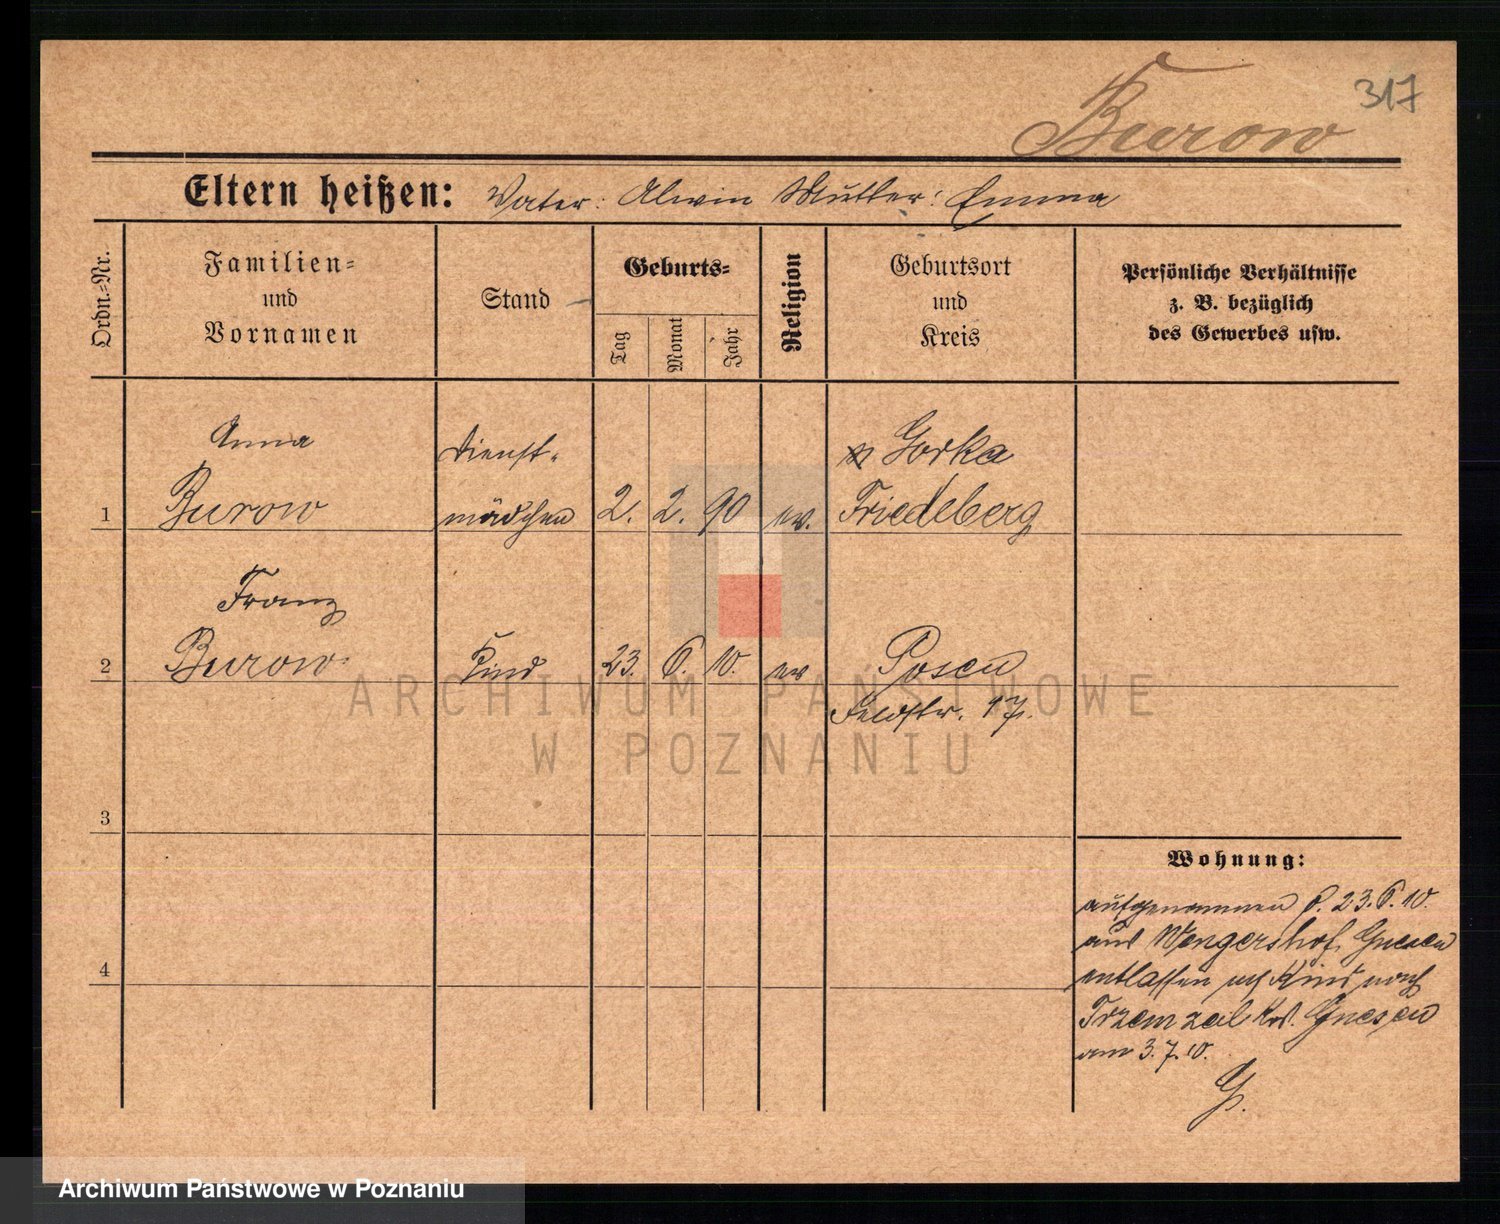 317
Burow
Eltern heißen: Vater: Alwin Mutter: Emma
Ordn.-Nr.
Familien-
und
Vornamen
Stand
Geburts-
Tag
Monat
Jahr
Religion
Geburtsort
und
Kreis
Persönliche Verhältnisse
z. B. bezüglich
des Gewerbes usw.
Anna Dienst- Gorka
1 Burow mädchen 2. 2. 90 ev. Friedeberg
Franz
2 Burow Kind 23. 6. 10. ev Posen
Feldstr. 17.
3
Wohnung:
aufgenommen 23. 6. 10.
aus Wengershof, Gnesen
4
entlassen Kind nach
Trzemzal Krs. Gnesen
am 3. 7. 10.
G.
ARCHIWUM PAŃSTWOWE
W POZNANIU
Archiwum Państwowe w Poznaniu